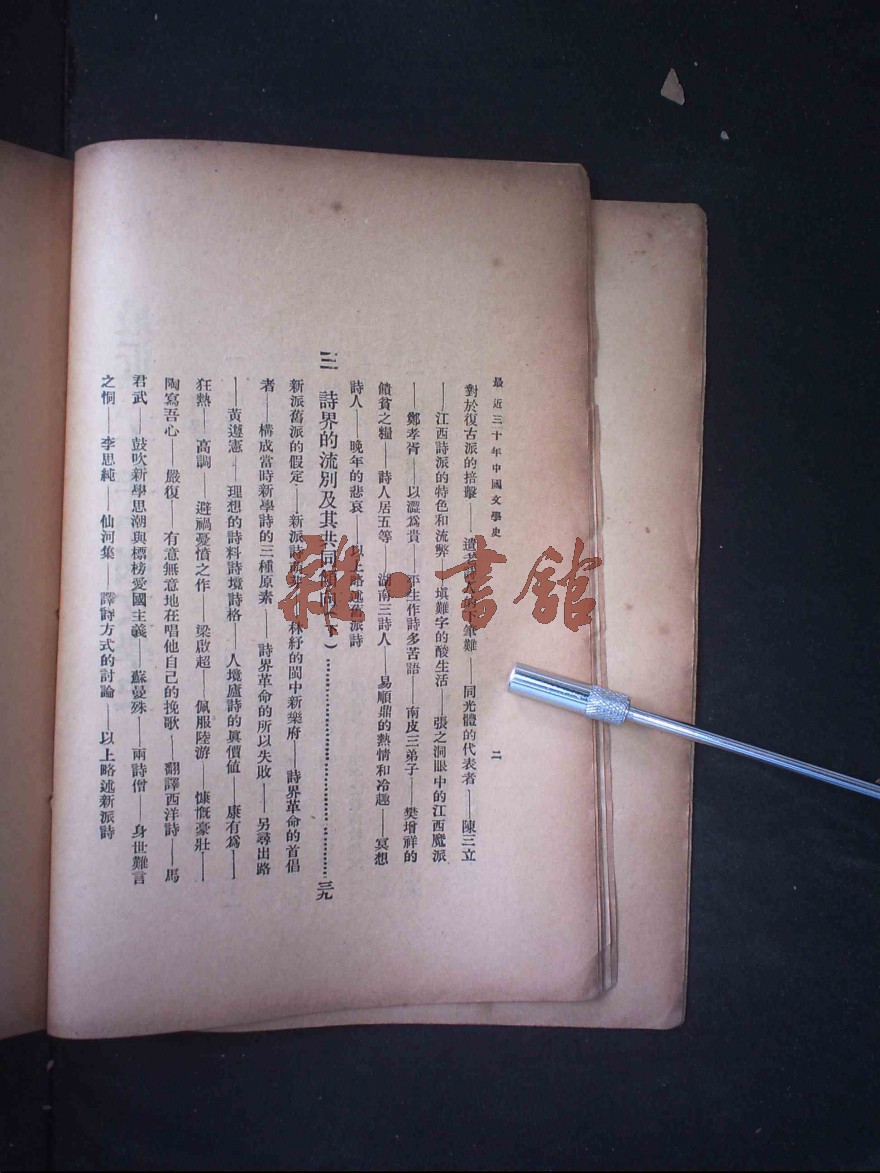 最近三十年中國文學史
二
對於復古派的掊擊——遺老詩人的下筆難——同光體的代表者——陳三立
——江西詩派的特色和流弊——填難字的酸生活——張之洞眼中的江西魔派
——鄭孝胥——以澀爲貴——平生作詩多苦語——南皮三弟子——樊增祥的
饋貧之糧——詩人居五等——湖南三詩人——易順鼎的熱情和冷趣——冥想
詩人——晚年的悲哀——以上略述舊派詩
三 詩界的流別及其共同傾向(下)……三九
新派舊派的假定——新派詩 林紓的閩中新樂府——詩界革命的首倡
者——構成當時新學詩的三種原素——詩界革命的所以失敗——另尋出路
——黃遵憲——理想的詩料詩境詩格——人境廬詩的眞價値——康有爲——
狂熱——高調——避禍憂憤之作——梁啟超——佩服陸游——慷慨豪壯——
陶寫吾心——嚴復——有意無意地在唱他自己的挽歌——翻譯西洋詩——馬
君武——鼓吹新學思潮與標榜愛國主義——蘇曼殊——兩詩僧——身世難言
之恫——李思純——仙河集——譯詩方式的討論——以上略述新派詩
雜·書館